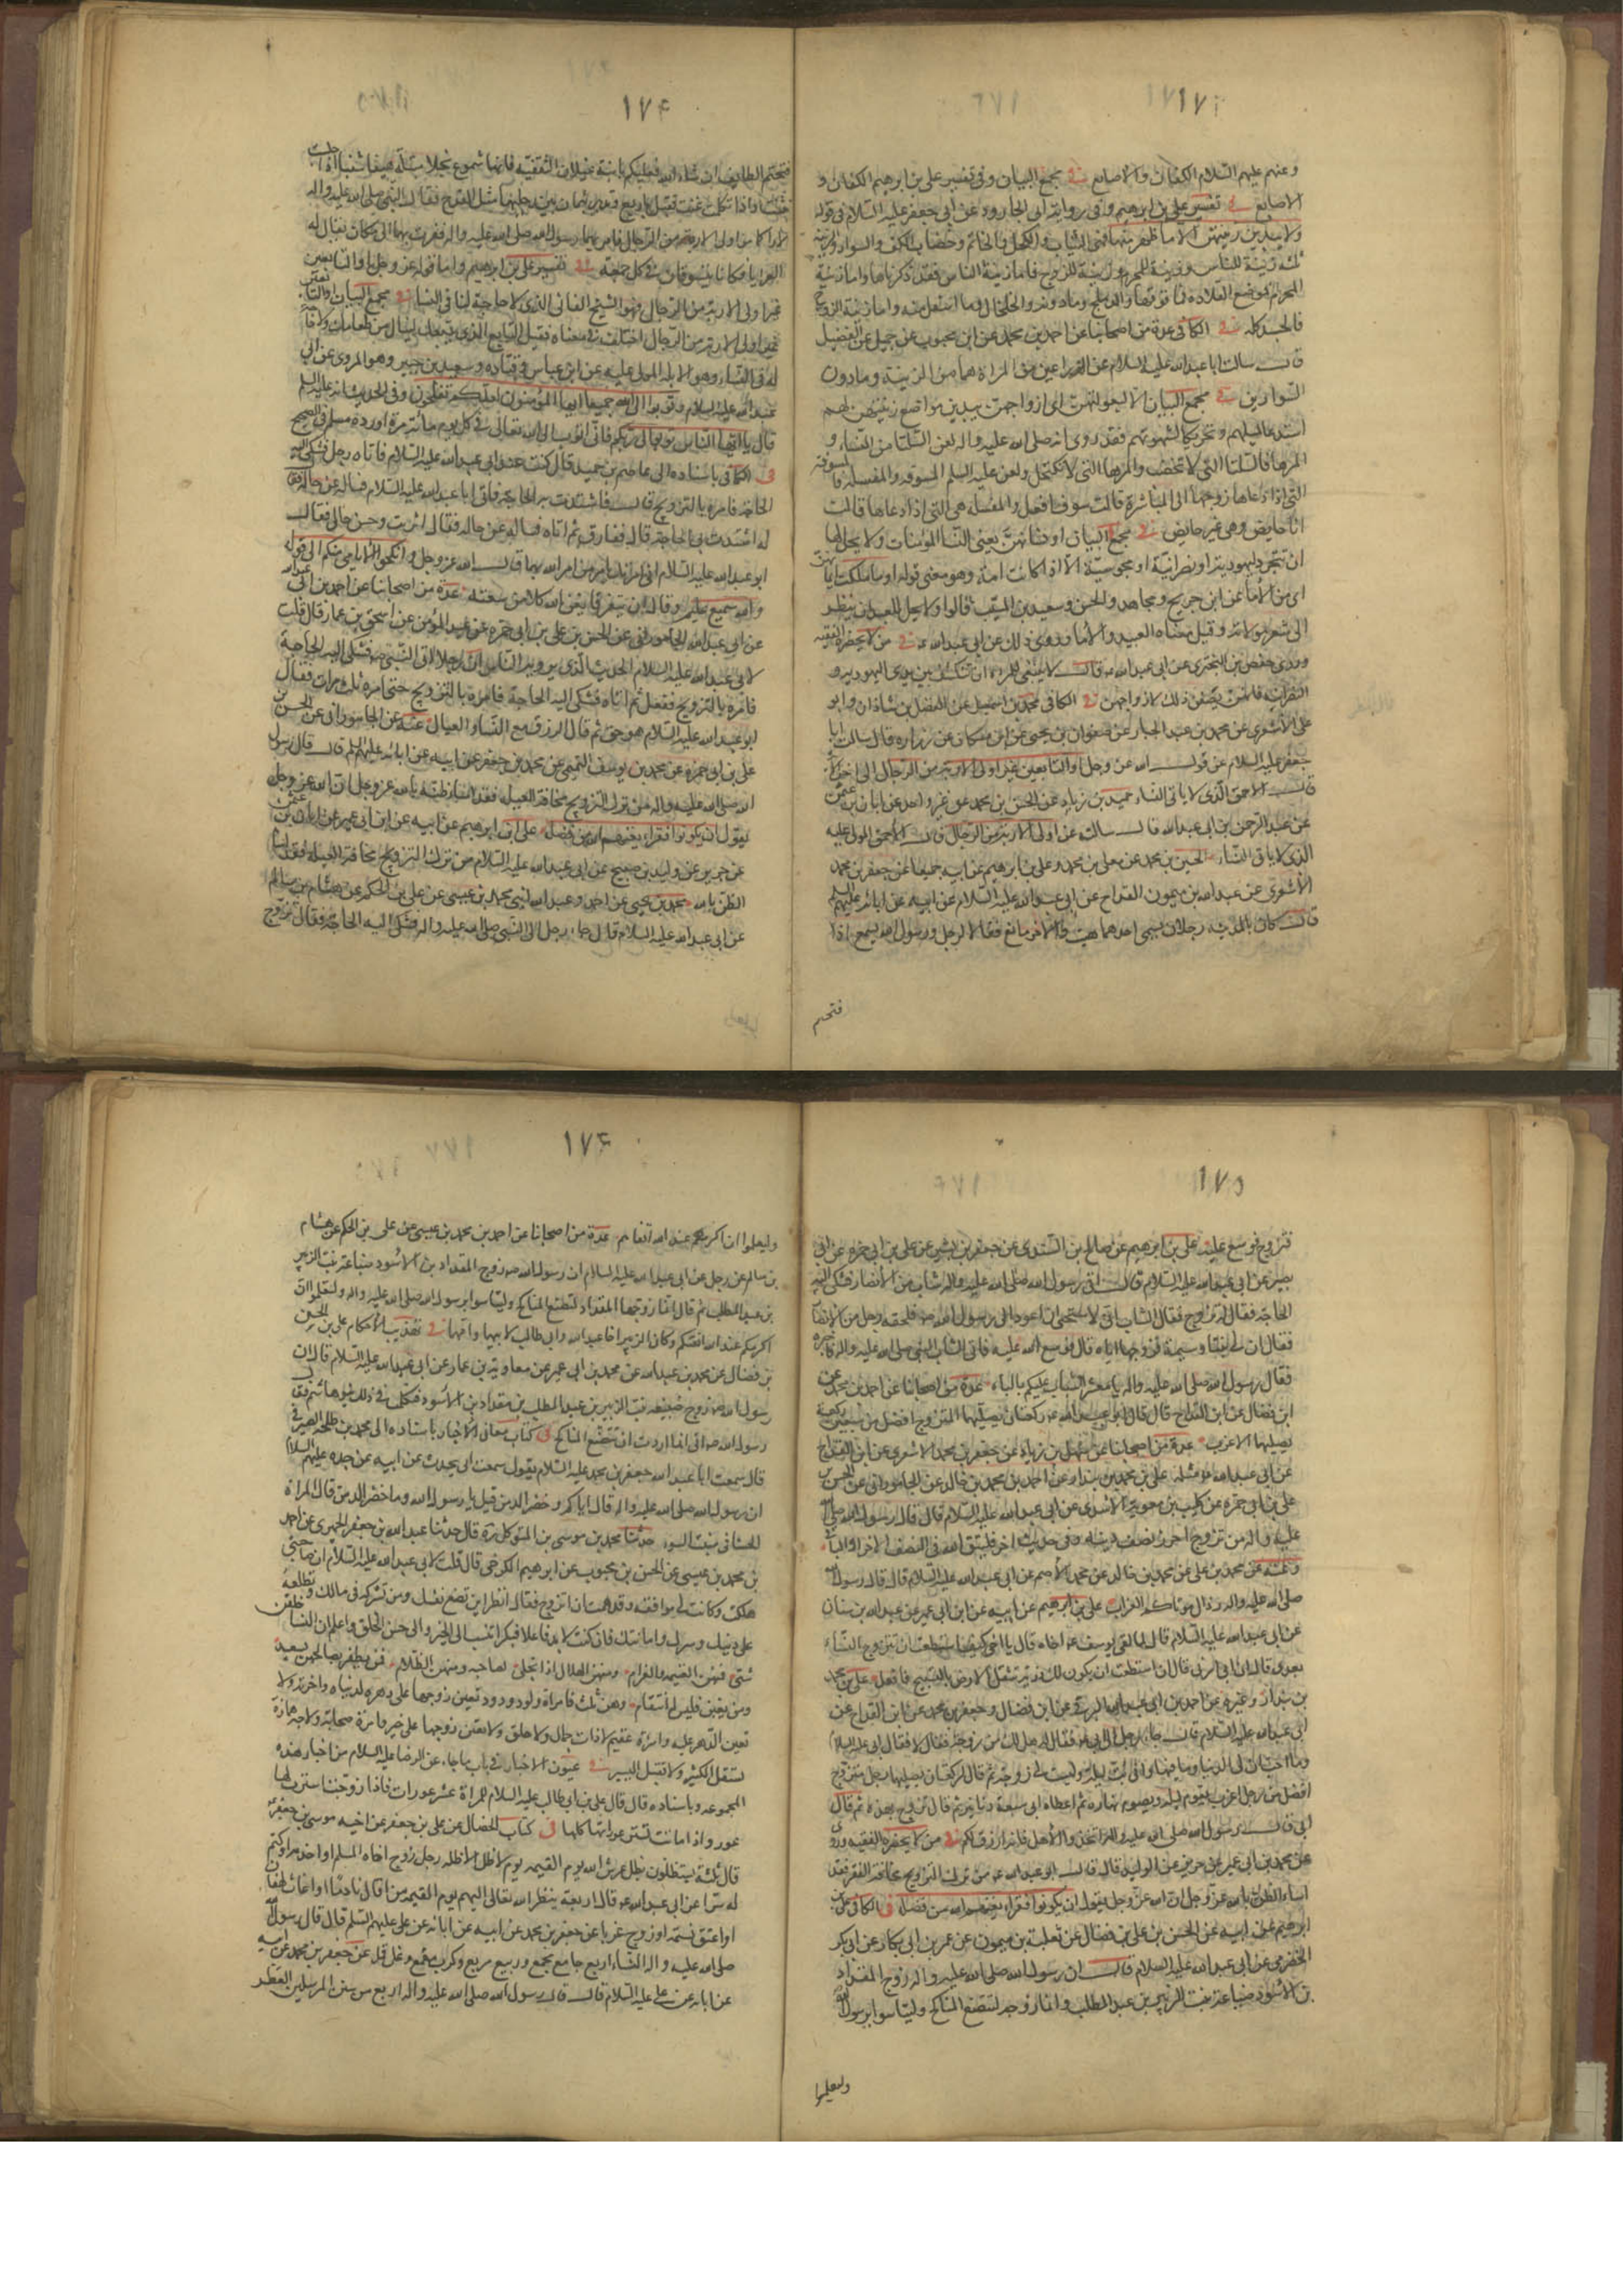 ١٧٣
وعنهم عليهم السلام الكفان والاصابع في مجمع البيان وفي تفسير علي بن ابرهيم الكفان و
الاصابع في تفسير علي بن ابرهيم وفي رواية ابي الجارود عن ابي جعفر عليه السلام في قوله
ولا يبدين زينتهن الا ما ظهر منها فهي الثياب والكحل والخاتم وخضاب الكف والسوار والزينة
ثلثة زينة للناس وزينة للمحرم وزينة للزوج فاما زينة الناس فقد ذكرناها واما زينة
المحرم فموضع القلادة فما فوقها والدملج وما دونه والخلخال وما اسفل منه واما زينة الزوج
فالجسد كله في الكافي عدة من اصحابنا عن احمد بن محمد عن ابن محبوب عن جميل عن الفضيل
قال سالت ابا عبد الله عليه السلام عن الذراعين من المراة هما من الزينة وما دون
السوارين في مجمع البيان الا لبعولتهن اي ازواجهن يبدين مواضع زينتهن لهم
استدعاء لميلهم وتحريكا لشهوتهم فقد روي انه صلى الله عليه واله لعن السلتا من النساء و
المرها فالسلتا التي لا تختضب والمرها التي لا تكتحل ولعن عليه السلم المسوفة والمفسلة فالمسوفة
التي اذا دعاها زوجها الى المباشرة قالت سوف افعل والمفسلة هي التي اذا دعاها قالت
انا حايض وهي غير حايض في مجمع البيان او نسائهن يعني النسا المؤمنات ولا يحل لها
ان تتجرد ليهودية او نصرانية او مجوسية الا اذا كانت امة وهو معنى قوله او ما ملكت ايمانهن
اي من الأما عن ابن جريج ومجاهد والحسن وسعيد بن المسيب قالوا ولا يحل للعبد ان ينظر
الى شعر مولاته وقيل معناه العبيد والأما وروي ذلك عن ابي عبد الله ع في من لا يحضره الفقيه
وروى حفص بن البختري عن ابي عبد الله ع قال لا ينبغي للمراة ان تنكشف بين يدي اليهودية و
النصرانية فانهن يصفن ذلك لازواجهن في الكافي محمد بن اسمعيل عن الفضل بن شاذان وابو
علي الأشعري عن محمد بن عبد الجبار عن صفوان بن يحيى عن ابن مسكان عن زرارة قال سالت ابا
جعفر عليه السلام عن قول الله عز وجل او التابعين غير اولي الاربة من الرجال الى اخره
قال الاحمق الذي لا ياتي النساء حميد بن زياد عن الحسن بن محمد عن غير واحد عن ابان بن عثمن
عن عبد الرحمن بن ابي عبد الله قال سالته عن اولي الاربة من الرجال قال الأحمق المولى عليه
الذي لا ياتي النساء الحسين بن محمد عن معلى بن محمد وعلي بن ابرهيم عن ابيه جميعا عن جعفر بن محمد
الأشعري عن عبد الله بن ميمون القداح عن ابي عبد الله عليه السلام عن ابيه عن ابائه عليهم السلم
قال كان بالمدينة رجلان يسمى احدهما هيت والأخر مانع فقالا لرجل ورسول الله يسمع اذا
فتحتم
١٧۴
فتحتم الطايف ان شاء الله فعليكم بابنة غيلان الثقفية فانها شموع نجلا مبتلة هيفا شنبا اذا جلست
تثنت واذا تكلمت غنت تقبل باربع وتدبر بثمان بين رجليها مثل القدح فقال النبي صلى الله عليه واله
لا اراكما من اولي الاربة من الرجال فامر بهما رسول الله صلى الله عليه واله فغرب بهما الى مكان يقال له
العرايا فكانا يتسوقان في كل جمعة في تفسير علي بن ابرهيم واما قوله عز وجل او التابعين
غير اولي الاربة من الرجال فهو الشيخ الفاني الذي لا حاجة له في النسا في مجمع البيان او التابعين
غير اولي الاربة من الرجال اختلف في معناه فقيل التابع الذي يتبعك لينال من طعامك ولا حاجة
له في النساء وهو الابله المولى عليه عن ابن عباس وقتادة وسعيد بن جبير وهو المروي عن ابي
عبد الله عليه السلام وتوبوا الى الله جميعا ايها المؤمنون لعلكم تفلحون وفي الحديث انه عليه السلم
قال يا ايها الناس توبوا الى ربكم فاني اتوب الى الله تعالى في كل يوم مائة مرة اورده مسلم في الصحيح
في الكافي باسناده الى عاصم بن حميد قال كنت عند ابي عبد الله عليه السلام فاتاه رجل فشكى اليه
الحاجة فامره بالتزويج قال فاشتدت به الحاجة فاتى ابا عبد الله عليه السلام فساله عن حاله فقال
له اشتدت بي الحاجة قال ففارق ثم اتاه فساله عن حاله فقال اثريت وحسن حالي فقال
ابو عبد الله عليه السلام اني امرتك بامرين امر الله بهما قال الله عز وجل وانكحوا الأيامى منكم الى قوله
والله سميع عليم وقال ان يتفرقا يغن الله كلا من سعته عدة من اصحابنا عن احمد بن ابي عبد الله
عن ابي عبد الله الجاموراني عن الحسن بن علي بن ابي حمزة عن عبد المؤمن عن اسحق بن عمار قال قلت
لابي عبد الله عليه السلام الحديث الذي يرويه الناس ان رجلا اتى النبي ص فشكى اليه الحاجة
فامره بالتزويج ففعل ثم اتاه فشكى اليه الحاجة فامره بالتزويج حتى امره ثلث مرات فقال
ابو عبد الله عليه السلام هو حق ثم قال الرزق مع النساء والعيال عنه عن الجاموراني عن الحسن بن
علي بن ابي حمزة عن محمد بن يوسف التميمي عن محمد بن جعفر عن ابيه عن ابائه عليهم السلم قال قال رسول
الله صلى الله عليه واله من ترك التزويج مخافة العيلة فقد اساء ظنه بالله عز وجل ان الله عز وجل
يقول ان يكونوا فقراء يغنهم الله من فضله علي بن ابرهيم عن ابيه عن ابن ابي عمير عن ابان بن عثمن
عن حريز عن وليد بن صبيح عن ابي عبد الله عليه السلام من ترك التزويج مخافة العيلة فقد اساء
الظن بالله محمد بن يحيى عن احمد وعبد الله ابني محمد بن عيسى عن علي بن الحكم عن هشام بن سالم
عن ابي عبد الله عليه السلام قال جاء رجل الى النبي صلى الله عليه واله فشكى اليه الحاجة فقال تزوج
١٧٥
فتزوج فوسع عليه علي بن ابرهيم عن صالح بن السندي عن جعفر بن بشير عن علي بن ابي حمزة عن ابي
بصير عن ابي عبد الله عليه السلام قال اتى رسول الله صلى الله عليه واله شاب من الأنصار فشكى اليه
الحاجة فقال له تزوج فقال الشاب اني لأستحيي ان اعود الى رسول الله ص فلحقه رجل من الأنصار
فقال ان لي بنتا وسيمة فزوجها اياه قال فوسع الله عليه فاتى الشاب النبي صلى الله عليه واله فاخبره
فقال رسول الله صلى الله عليه واله يا معشر الشباب عليكم بالباه عدة من اصحابنا عن احمد بن محمد عن
ابن فضال عن ابن القداح قال قال ابو عبد الله ع ركعتان يصليهما المتزوج افضل من سبعين ركعة
يصليها الاعزب عدة من اصحابنا عن سهل بن زياد عن جعفر بن محمد الاشعري عن ابن القداح
عن ابي عبد الله ع مثله علي بن محمد بن بندار عن احمد بن محمد بن خالد عن الجاموراني عن الحسن بن
علي بن ابي حمزة عن كليب بن معوية الاسدي عن ابي عبد الله عليه السلام قال قال رسول الله صلى الله
عليه واله من تزوج احرز نصف دينه وفي حديث اخر فليتق الله في النصف الاخر او الباقي
وعنه عن محمد بن علي عن محمد بن خالد عن محمد الأصم عن ابي عبد الله عليه السلام قال قال رسول الله
صلى الله عليه واله رذال موتاكم العزاب علي بن ابرهيم عن ابيه عن ابن ابي عمير عن عبد الله بن سنان
عن ابي عبد الله عليه السلام قال لما لقي يوسف ع اخاه قال يا اخي كيف استطعت ان تتزوج النساء
بعدي قال ان ابي امرني قال ان استطعت ان يكون لك ذرية تثقل الارض بالتسبيح فافعل علي بن محمد
بن بندار وغيره عن احمد بن ابي عبد الله البرقي عن ابن فضال وجعفر بن محمد عن ابن القداح عن
ابي عبد الله عليه السلام قال جاء رجل الى ابي ع فقال له هل لك من زوجة فقال لا فقال ابي عليه السلام
وما احب ان لي الدنيا وما فيها واني بت ليلة وليست لي زوجة ثم قال الركعتان يصليهما رجل متزوج
افضل من رجل اعزب يقوم ليله ويصوم نهاره ثم اعطاه ابي سبعة دنانير ثم قال تزوج بهذه ثم قال
ابي قال رسول الله صلى الله عليه واله اتخذوا الأهل فانه ارزق لكم في من لا يحضره الفقيه وروى
عن محمد بن ابي عمير عن حريز عن الوليد قال قال ابو عبد الله ع من ترك التزويج مخافة الفقر فقد
اساء الظن بالله عز وجل ان الله عز وجل يقول ان يكونوا فقراء يغنهم الله من فضله في الكافي علي بن
ابرهيم عن ابيه عن الحسن بن علي بن فضال عن ثعلبة بن ميمون عن عمر بن ابي بكار عن ابي بكر
الحضرمي عن ابي عبد الله عليه السلام قال ان رسول الله صلى الله عليه واله زوج المقداد
بن الأسود ضباعة بنت الزبير بن عبد المطلب وانما زوجه لتتضع المناكح وليتاسوا برسول الله
وليعلموا
١٧۶
وليعلموا ان اكرمكم عند الله اتقاهم عدة من اصحابنا عن احمد بن محمد بن عيسى عن علي بن الحكم عن هشام
بن سالم عن رجل عن ابي عبد الله عليه السلام ان رسول الله ص زوج المقداد بن الأسود ضباعة بنت الزبير
بن عبد المطلب ثم قال انما زوجها المقداد لتتضع المناكح وليتاسوا برسول الله صلى الله عليه واله ولتعلموا ان
اكرمكم عند الله اتقيكم وكان الزبير اخا عبد الله وابي طالب لابيهما وامهما في تهذيب الأحكام علي بن الحسن
بن فضال عن محمد بن عبد الله عن محمد بن ابي عمير عن معاوية بن عمار عن ابي عبد الله عليه السلام قال ان
رسول الله ص زوج ضبيعة بنت الزبير بن عبد المطلب من مقداد بن الأسود فتكلم في ذلك بنو هاشم فقال
رسول الله ص اني انما اردت ان تتضع المناكح في كتاب معاني الأخبار باسناده الى محمد بن طلحة الصيرفي
قال سمعت ابا عبد الله جعفر بن محمد عليه السلام يقول سمعت ابي يحدث عن ابيه عن جده عليهم السلام
ان رسول الله صلى الله عليه واله قال اياكم وخضر الدمن قيل يا رسول الله وما خضر الدمن قال المراة
الحسنا في منبت السوء حدثنا محمد بن موسى بن المتوكل ره قال حدثنا عبد الله بن جعفر الحميري عن احمد
بن محمد بن عيسى عن الحسن بن محبوب عن ابرهيم الكرخي قال قلت لابي عبد الله عليه السلام ان صاحبتي
هلكت وكانت لي موافقة وقد هممت ان اتزوج فقال انظر اين تضع نفسك ومن تشركه في مالك وتطلعه
على دينك وسرك وامانتك فان كنت لا بد فاعلا فبكرا تنسب الى الخير والى حسن الخلق واعلم ان النسا خلقن
شتى فمنهن الغنيمة والغرام ومنهن الهلال اذا تجلى لصاحبه ومنهن الظلام فمن يظفر بصالحهن يسعد
ومن يغبن فليس له انتقام وهن ثلث فامراة ولود ودود تعين زوجها على دهره لدنياه واخرته ولا
تعين الدهر عليه وامراة عقيم لا ذات جمال ولا خلق ولا تعين زوجها على خير وامراة صخابة ولاجة همازة
تستقل الكثير ولا تقبل اليسير في عيون الاخبار في باب ما جاء عن الرضا عليه السلام من اخبار هذه
المجموعة وباسناده قال قال علي بن ابي طالب عليه السلام للمراة عشر عورات فاذا زوجت استتر لها
عورة واذا ماتت استتر عوراتها كلها في كتاب الخصال عن علي بن جعفر عن اخيه موسى بن جعفر ع
قال ثلثة يستظلون بظل عرش الله يوم القيمة يوم لا ظل الا ظله رجل زوج اخاه المسلم او اخدمه او كتم
له سرا عن ابي عبد الله ع قال اربعة ينظر الله تعالى اليهم يوم القيمة من اقال نادما او اغاث لهفان
او اعتق نسمة او زوج عزبا عن جعفر بن محمد عن ابيه عن ابائه عن علي عليهم السلم قال قال رسول الله
صلى الله عليه واله النساء اربع جامع مجمع وربيع مربع وكرب مقمع وغل قمل عن جعفر بن محمد عن ابيه
عن ابائه عن علي عليه السلام قال قال رسول الله صلى الله عليه واله اربع من سنن المرسلين العطر